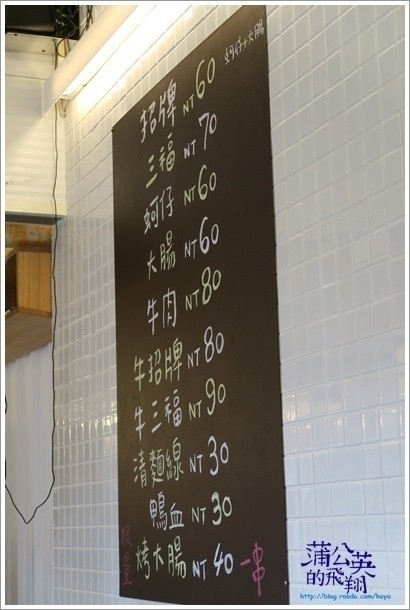 招牌 NT 60 蚵仔+大腸
三福 NT 70
蚵仔 NT 60
大腸 NT 60
牛肉 NT 80
牛招牌 NT 80
牛三福 NT 90
清麵線 NT 30
鴨血 NT 30
限量 烤大腸 NT 40 一串
蒲公英的飛翔
http://blog.roodo.com/kayu